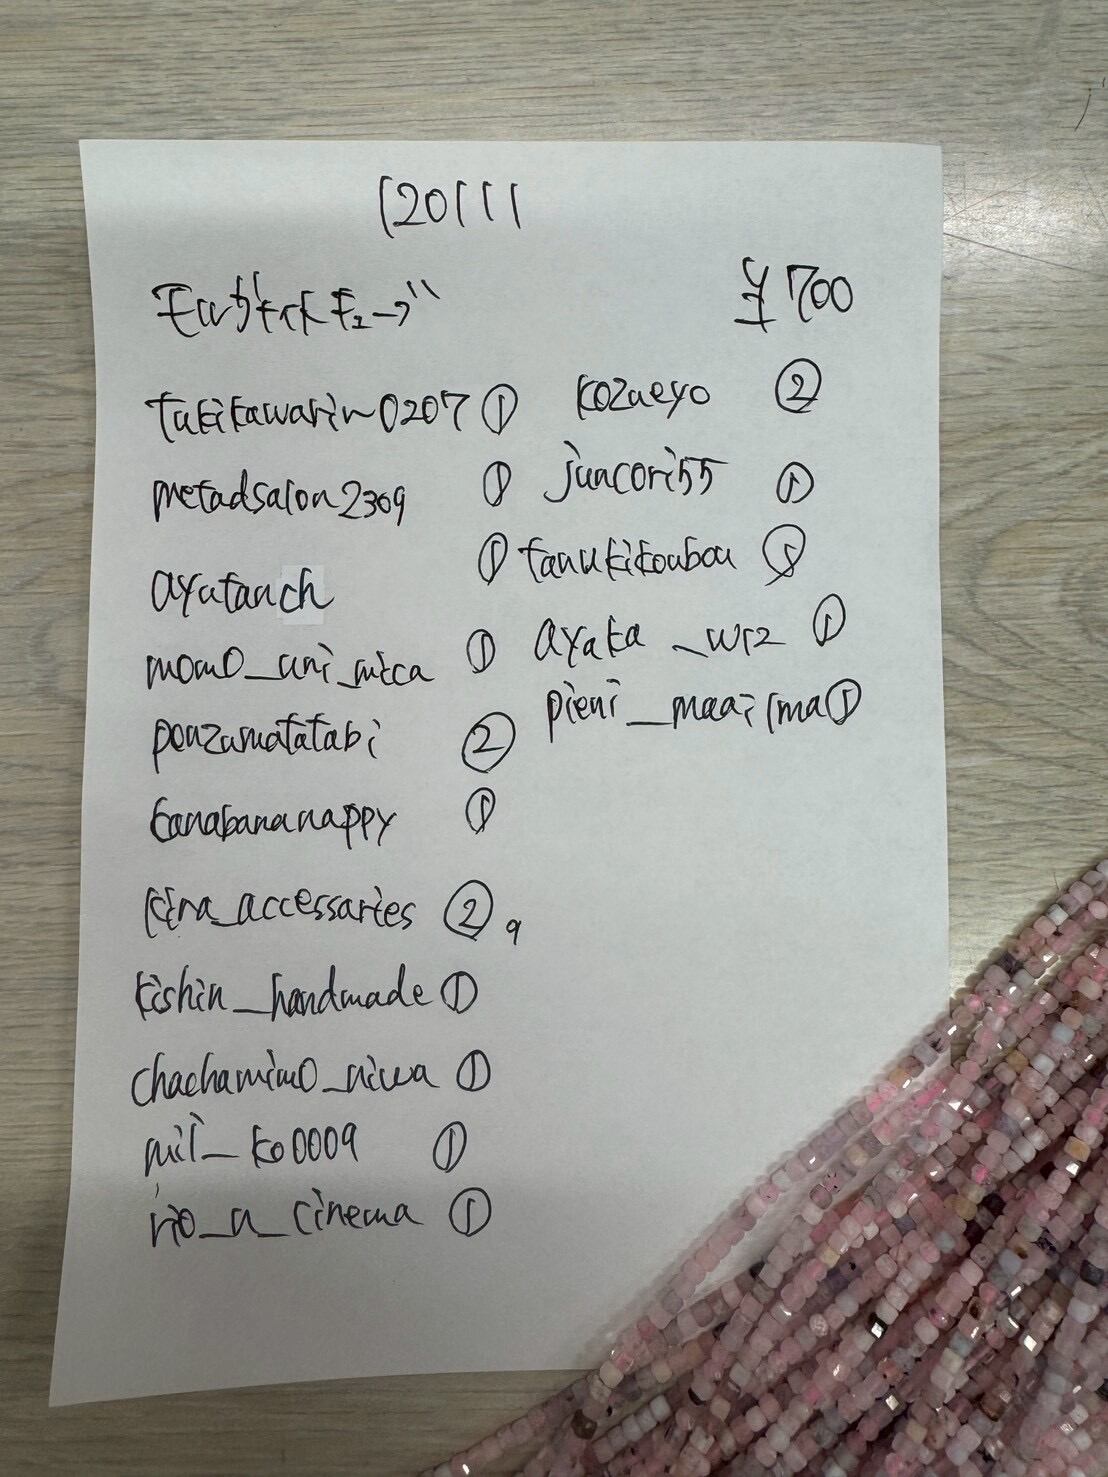 120111
モルガナイトキューブ ¥700
tukikawarin0207 ①
metadsalon2309 ①
ayatanch ①
momo_uni_mica ①
ponzumatatabi ②
banabananappy ①
kira_accessaries ② 9
kishin_handmade ①
chachamimo_niwa ①
mil_ko0009 ①
rio_a_cinema ①
kozueyo ②
juncori55 ①
tanukikoubou
ayaka_wr2 ①
pieni_maailma ①